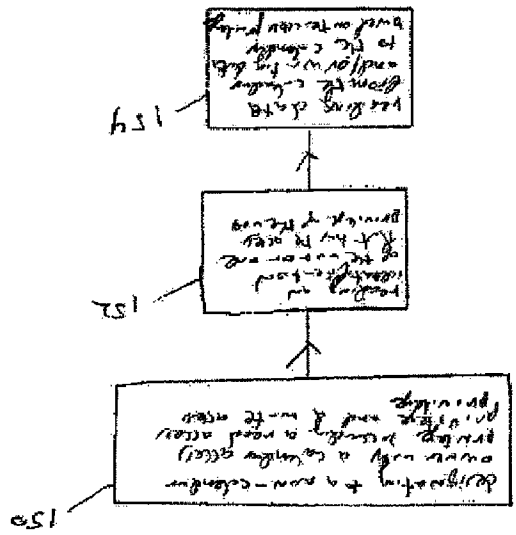 150
designating to a non-calendar
owner only a calendar access
privilege including a read access
privilege and a write access
privilege
152
reading an
identification
of the user or one
that has the access
privilege of the user
154
reading data
from the calendar
and/or writing data
to the calendar
based on the access privilege